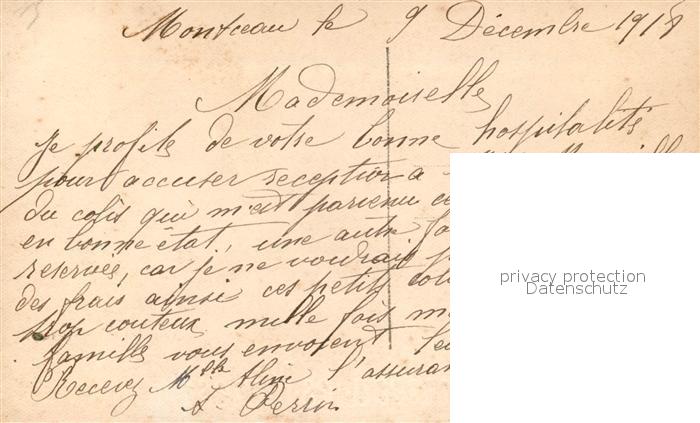 Montceau le 9 Décembre 191
Mademoiselle
Je profite de votre bonne hospitalité
pour accuser reception a
du colis qui m'est parvenu ce
en bonne état, une autre fo
reservée, car je ne voudrais p
des frais ainsi ces petits coli
trop couteux mille fois m
famille vous envoient leu
Recevez Mlle Aline l'assuran
Perrin
privacy protection
Datenschutz